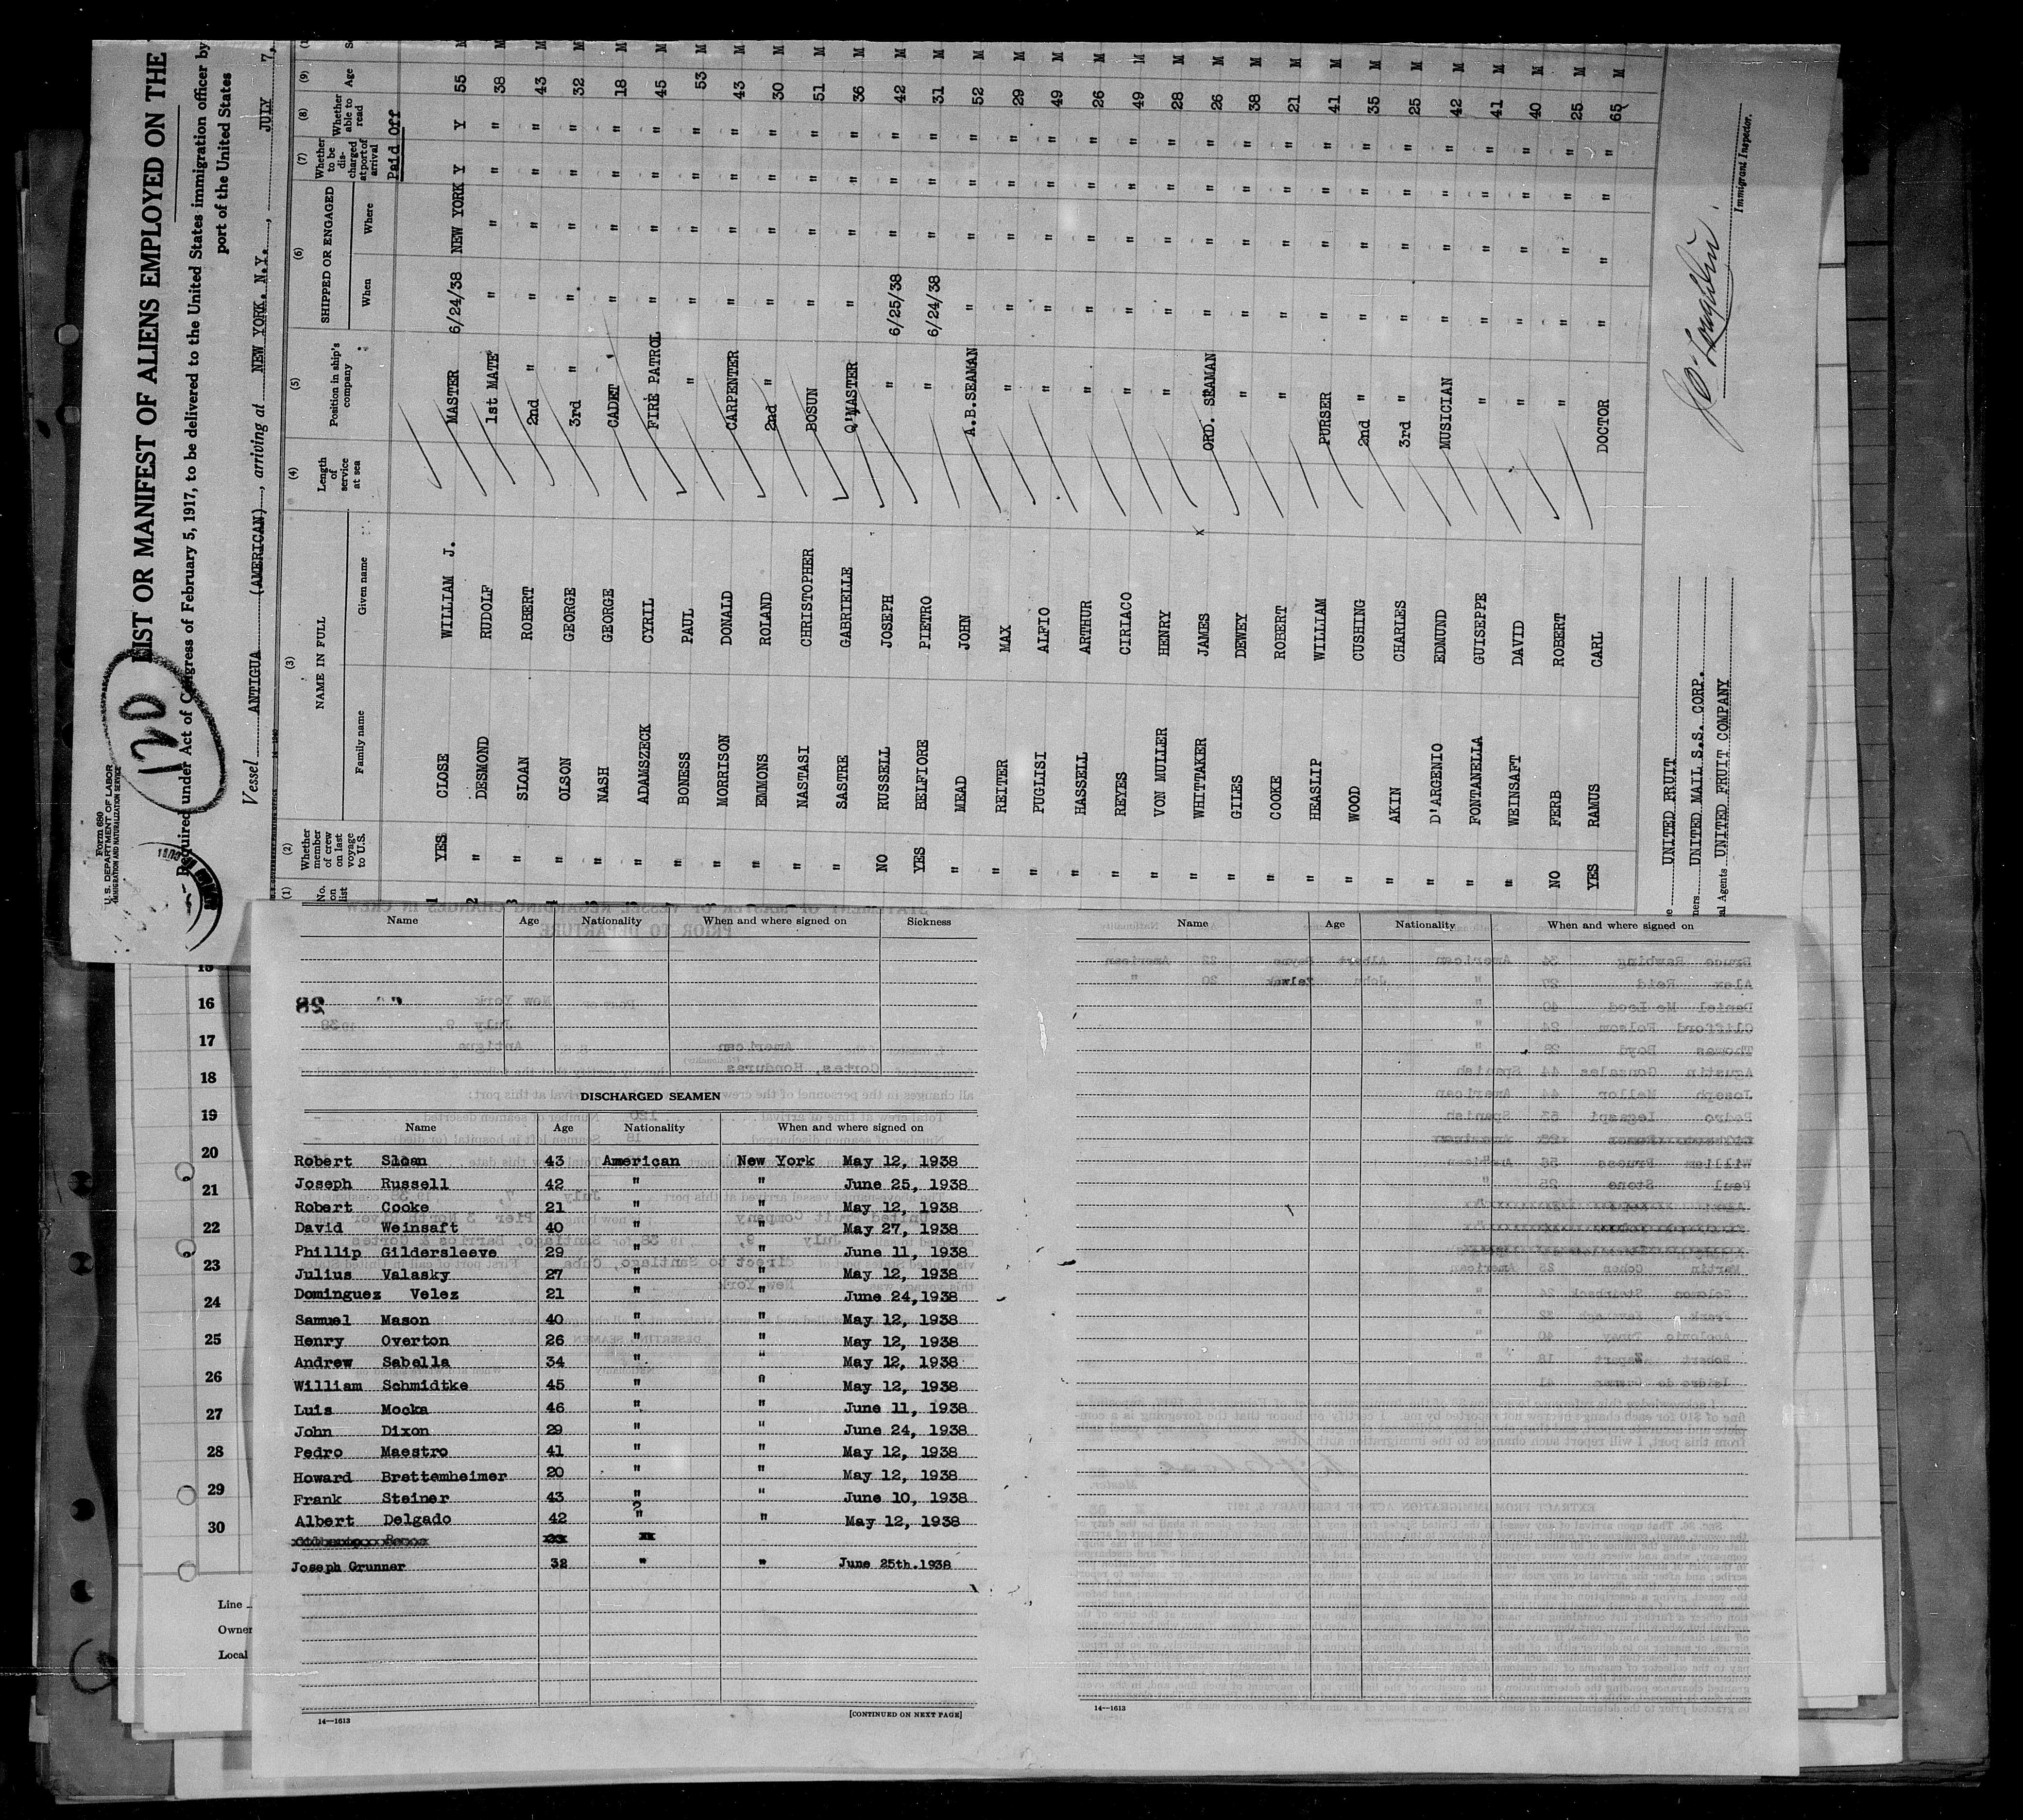 Form 680
U. S. DEPARTMENT OF LABOR
IMMIGRATION AND NATURALIZATION SERVICE
120
LIST OR MANIFEST OF ALIENS EMPLOYED ON THE
Required under Act of Congress of February 5, 1917, to be delivered to the United States immigration officer by
port of the United States
Vessel ANTIGUA (AMERICAN), arriving at NEW YORK. N.Y., JULY 7,
(1) (2) (3) (4) (5) (6) (7) (8) (9)
No. on list Whether member of crew on last voyage to U.S. NAME IN FULL Length of service at sea Position in ship's company SHIPPED OR ENGAGED Whether to be discharged at port of arrival Whether able to read Age
Family name Given name When Where
Paid Off
1 YES CLOSE WILLIAM J. MASTER 6/24/38 NEW YORK Y Y 55 M
2 " DESMOND RUDOLF 1st MATE " " " " 38 M
3 " SLOAN ROBERT 2nd " " " " " 43 M
4 " OLSON GEORGE 3rd " " " " " 32 M
" NASH GEORGE CADET " " " " 18 M
" ADAMSZECK CYRIL FIRE PATROL " " " " 45 M
" BONESS PAUL " " " " " 53 M
" MORRISON DONALD CARPENTER " " " " 43 M
" EMMONS ROLAND 2nd " " " " " 30 M
" NASTASI CHRISTOPHER BOSUN " " " " 51 M
" SASTRE GABRIELLE Q'MASTER " " " " 36 M
NO RUSSELL JOSEPH " 6/25/38 " " " 42 M
YES BELFIORE PIETRO " 6/24/38 " " " 31 M
" MEAD JOHN A.B.SEAMAN " " " " 52 M
" REITER MAX " " " " " 29 M
" PUGLISI ALFIO " " " " " 49 M
" HASSELL ARTHUR " " " " " 26 M
" REYES CIRIACO " " " " " 49 M
" VON MULLER HENRY " " " " " 28 M
" WHITTAKER JAMES x ORD. SEAMAN " " " " 26 M
" GILES DEWEY " " " " " 38 M
" COOKE ROBERT " " " " " 21 M
" HEASLIP WILLIAM PURSER " " " " 41 M
" WOOD CUSHING 2nd " " " " " 35 M
" AKIN CHARLES 3rd " " " " " 25 M
" D'ARGENIO EDMUND MUSICIAN " " " " 42 M
" FONTANELLA GUISEPPE " " " " " 41 M
" WEINSAFT DAVID " " " " " 40 M
NO FERB ROBERT " " " " " 25 M
YES RAMUS CARL DOCTOR " " " " 65 M
UNITED FRUIT
UNITED MAIL S.S. CORP.
Agents UNITED FRUIT COMPANY
Immigrant Inspector.
Name Age Nationality When and where signed on Sickness
DISCHARGED SEAMEN
Name Age Nationality When and where signed on
Robert Sloan 43 American New York May 12, 1938
Joseph Russell 42 " " June 25, 1938
Robert Cooke 21 " " May 12, 1938
David Weinsaft 40 " " May 27, 1938
Phillip Gildersleeve 29 " " June 11, 1938
Julius Valasky 27 " " May 12, 1938
Dominguez Velez 21 " " June 24,1938
Samuel Mason 40 " " May 12, 1938
Henry Overton 26 " " May 12, 1938
Andrew Sabella 34 " " May 12, 1938
William Schmidtke 45 " " May 12, 1938
Luis Mocka 46 " " June 11, 1938
John Dixon 29 " " June 24, 1938
Pedro Maestro 41 " " May 12, 1938
Howard Brettemheimer 20 " " May 12, 1938
Frank Steiner 43 " " June 10, 1938
Albert Delgado 42 ? " " May 12, 1938
Joseph Grunner 32 " " June 25th.1938
14—1613 [CONTINUED ON NEXT PAGE]
Name Age Nationality When and where signed on
14—1613
15
16
17
18
19
20
21
22
23
24
25
26
27
28
29
30
Line
Owner
Local